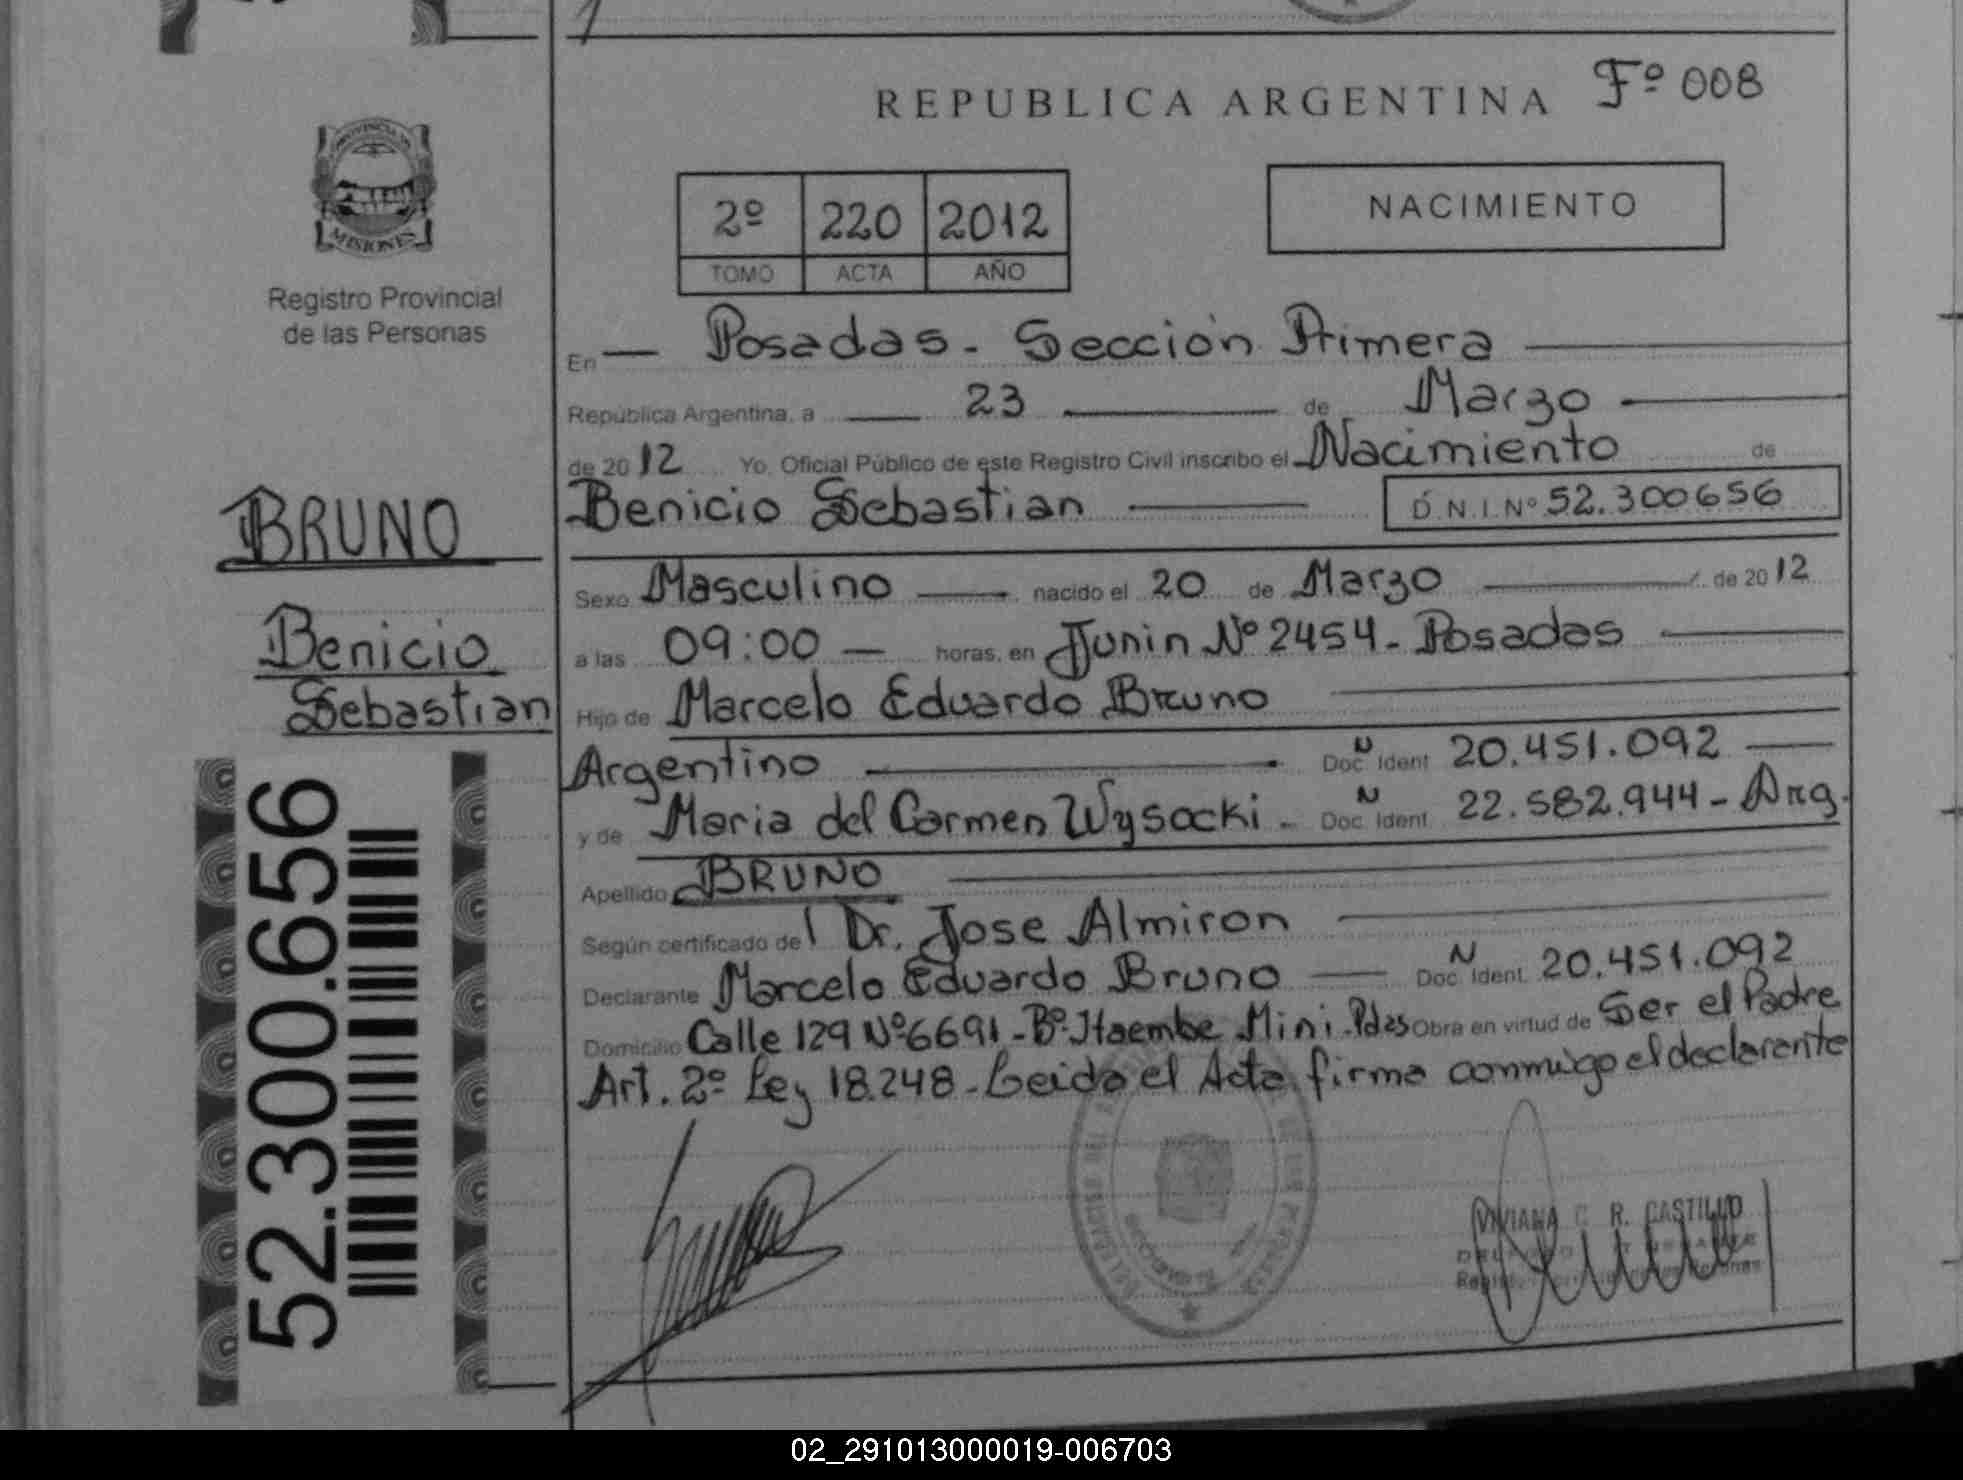 REPUBLICA ARGENTINA Fº 008
PROVINCIA DE
MISIONES
Registro Provincial
de las Personas
2º 220 2012
TOMO ACTA AÑO
NACIMIENTO
En — Posadas - Sección Primera
República Argentina, a 23 de Marzo
de 2012 Yo, Oficial Público de este Registro Civil inscribo el Nacimiento de
Benicio Sebastian D.N.I.Nº 52.300656
BRUNO
Benicio
Sebastian
Sexo Masculino nacido el 20 de Marzo de 2012
a las 09:00 — horas, en Junin Nº 2454 - Posadas
Hijo de Marcelo Eduardo Bruno
Argentino Doc. N Ident. 20.451.092
y de Maria del Carmen Wysocki - Doc. N Ident. 22.582.944 - Arg.
Apellido BRUNO
Según certificado del Dr. Jose Almiron
Declarante Marcelo Eduardo Bruno — Doc. N Ident. 20.451.092
Domicilio Calle 129 Nº 6691 - Bº Itaembe Mini - Pdas Obra en virtud de Ser el Padre
Art. 2º Ley 18.248 - Leida el Acta firma conmigo el declarante
52.300.656
VIVIANA C. R. CASTILLO
02_291013000019-006703